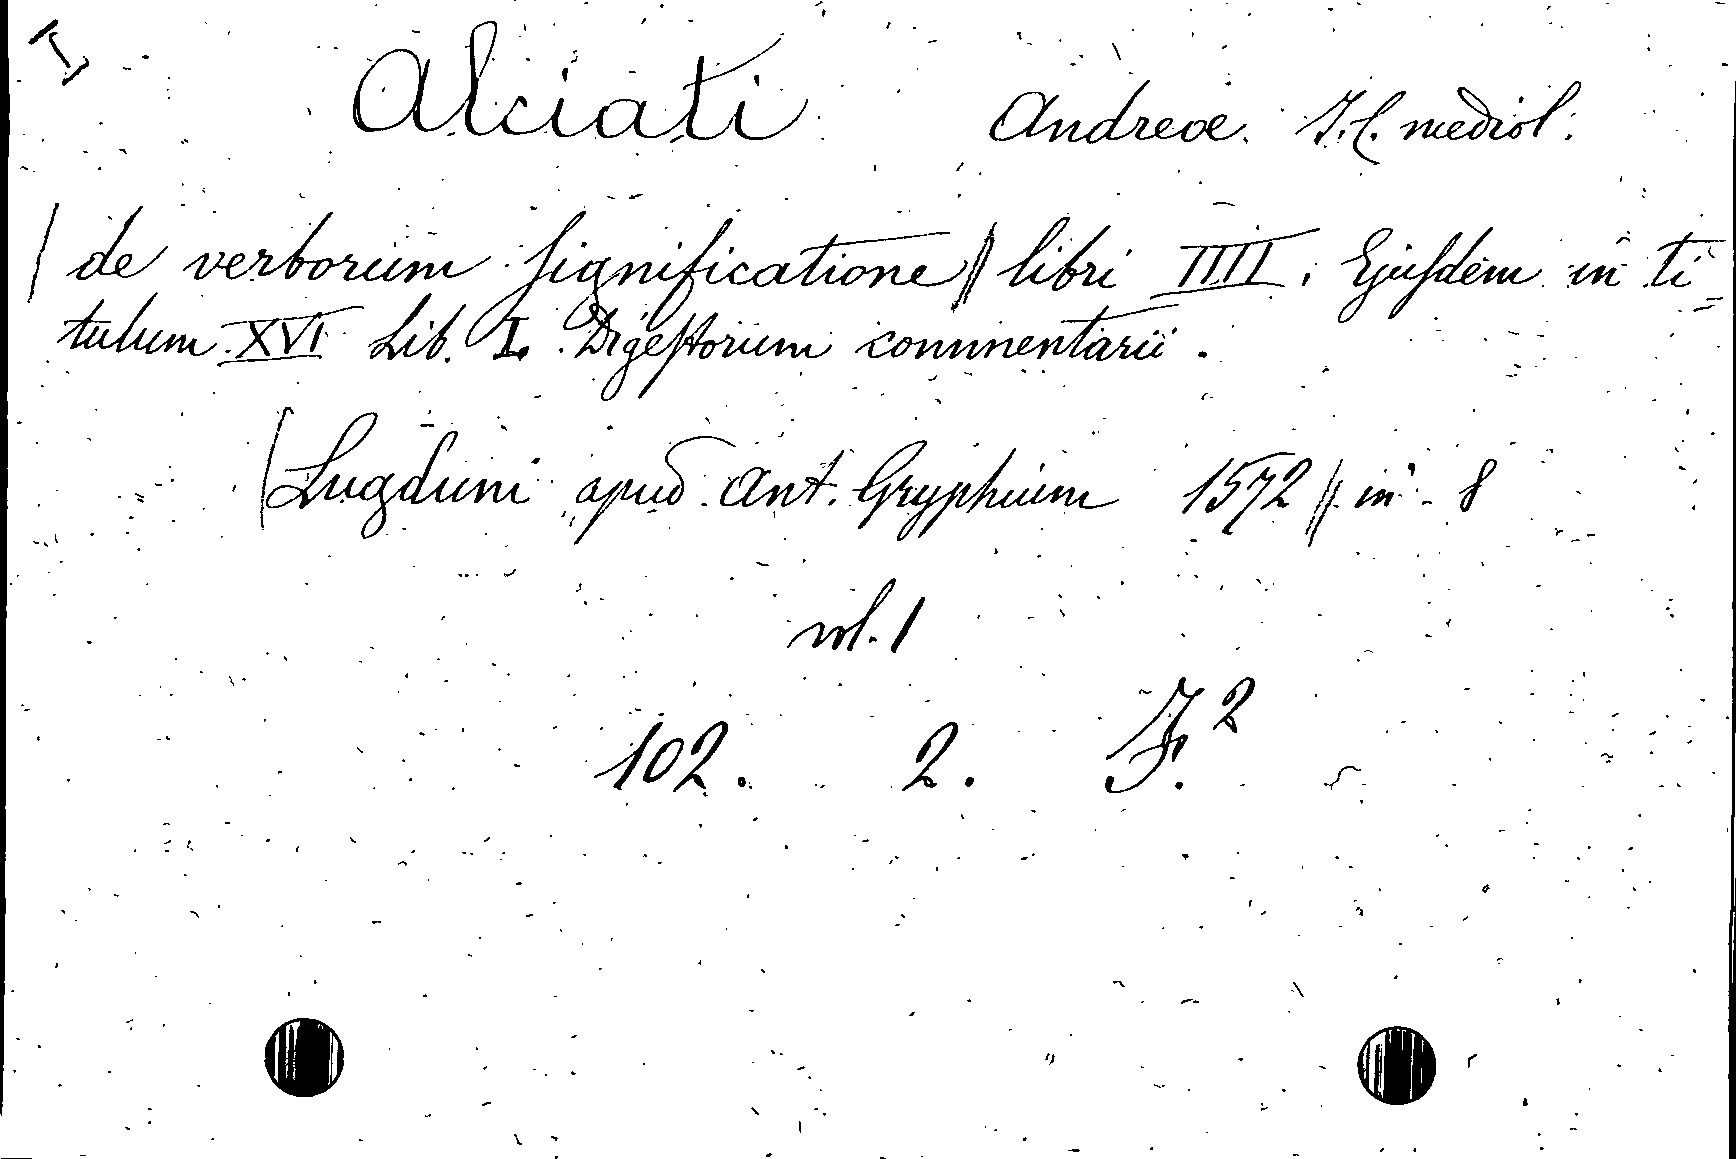 I
Alciati Andreæ. J. C. mediol.
| de verborum significatione || libri IIII. Ejusdem in ti=
tulum XVI Lib. I. Digestorum commentarii.
| Lugduni apud Ant. Gryphium 1572 || in - 8
vol. 1
102. 2. F.²